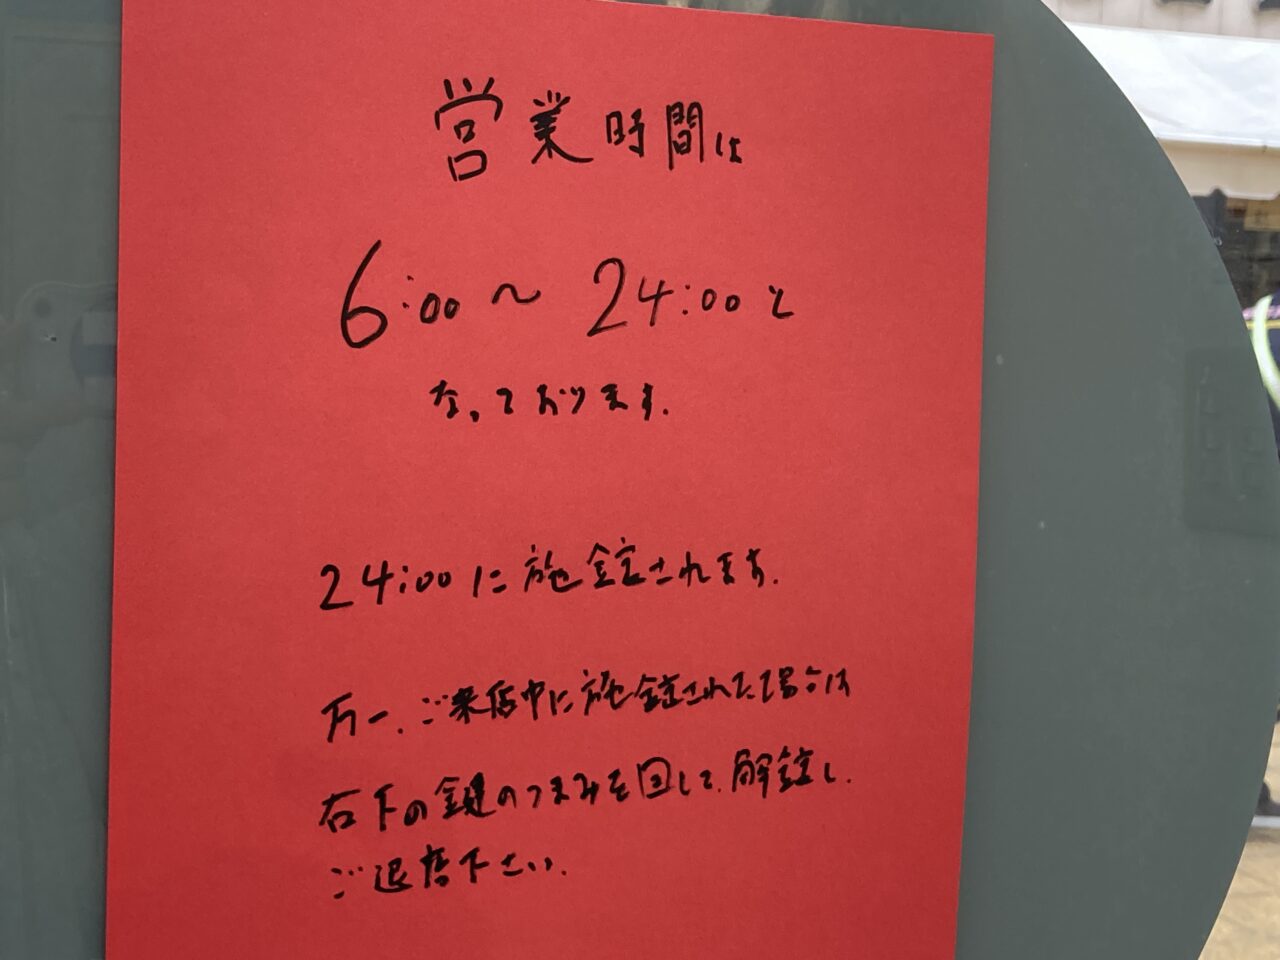 営業時間は
6:00～24:00と
なっております.
24:00に施錠されます.
万一、ご来店中に施錠された場合は
右下の鍵のつまみを回して、解錠し、
ご退店下さい.